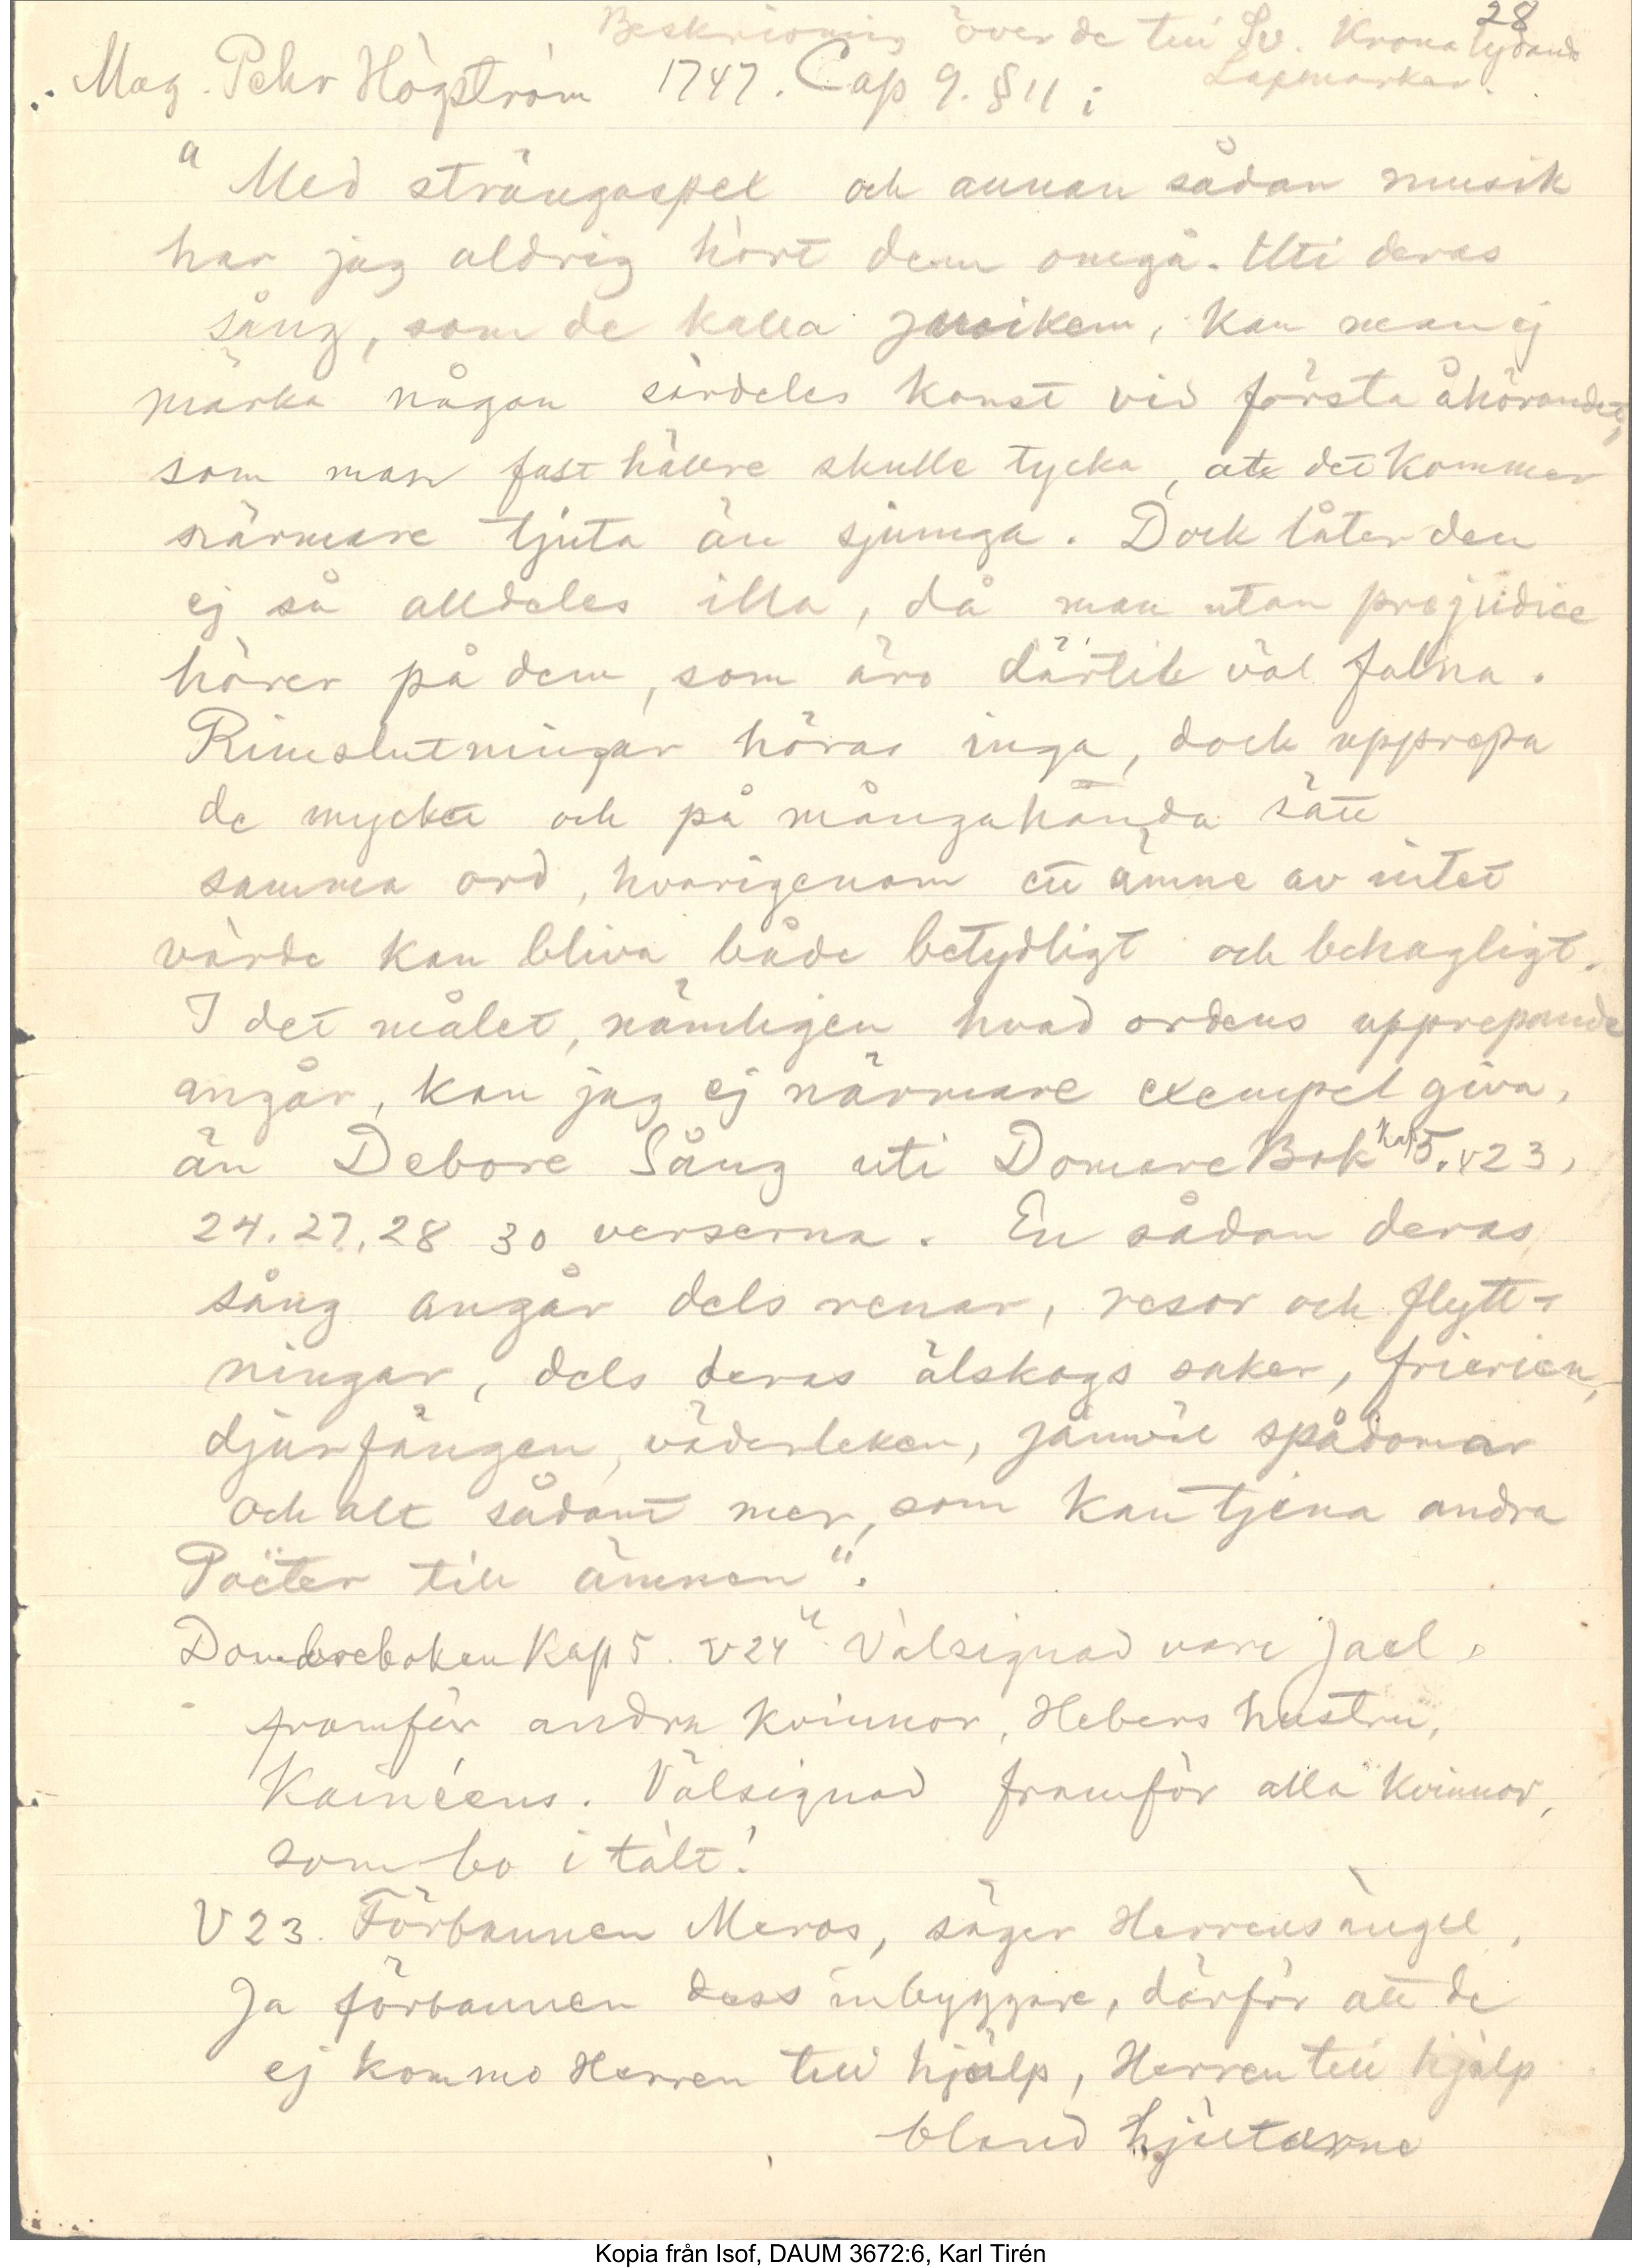 28
Beskrivning över de till Sv. Krona lydande
Lapmarker.
Mag. Pehr Högström 1747. Cap 9. § 11 i
" Med strängaspel och annan sådan musik
har jag aldrig hört dem omgå. Uti deras
sång, som de kalla juoikem, kan man ej
märka någon särdeles konst vid första åhörandet,
som man fast hällre skulle tycka, att det kommer
närmare tjuta än sjunga. Dock låter den
ej så alldeles illa, då man utan prejudice
hörer på dem, som äro därtill väl fallna.
Rimslutningar höras inga, dock upprepa
de mycket och på mångahanda sätt
samma ord, hvarigenom ett ämne av intet
värde kan bliva både betydligt och behagligt.
I det målet, nämligen hvad ordens upprepande
angår, kan jag ej närmare exempel giva,
än Debore Sång uti Domare Bok Kap 5. v 23,
24. 27, 28 30 verserna. En sådan deras
sång angår dels renar, resor och flytt-
ningar, dels deras älskogs saker, frierien,
djurfången, väderleken, jämväl spådomar
och alt sådant mer, som kan tjena andra
Poëter till ämnen".
Domareboken Kap 5. v 24 " Välsignad vare Jael,
framför andra kvinnor, Hebers hustru,
Kainéens. Välsignad framför alla kvinnor,
som bo i tält!
V 23. Förbannen Meros, säger Herrens ängel,
Ja förbannen dess inbyggare, därför att de
ej kommo Herren till hjälp, Herren till hjälp
bland hjältarne
Kopia från Isof, DAUM 3672:6, Karl Tirén